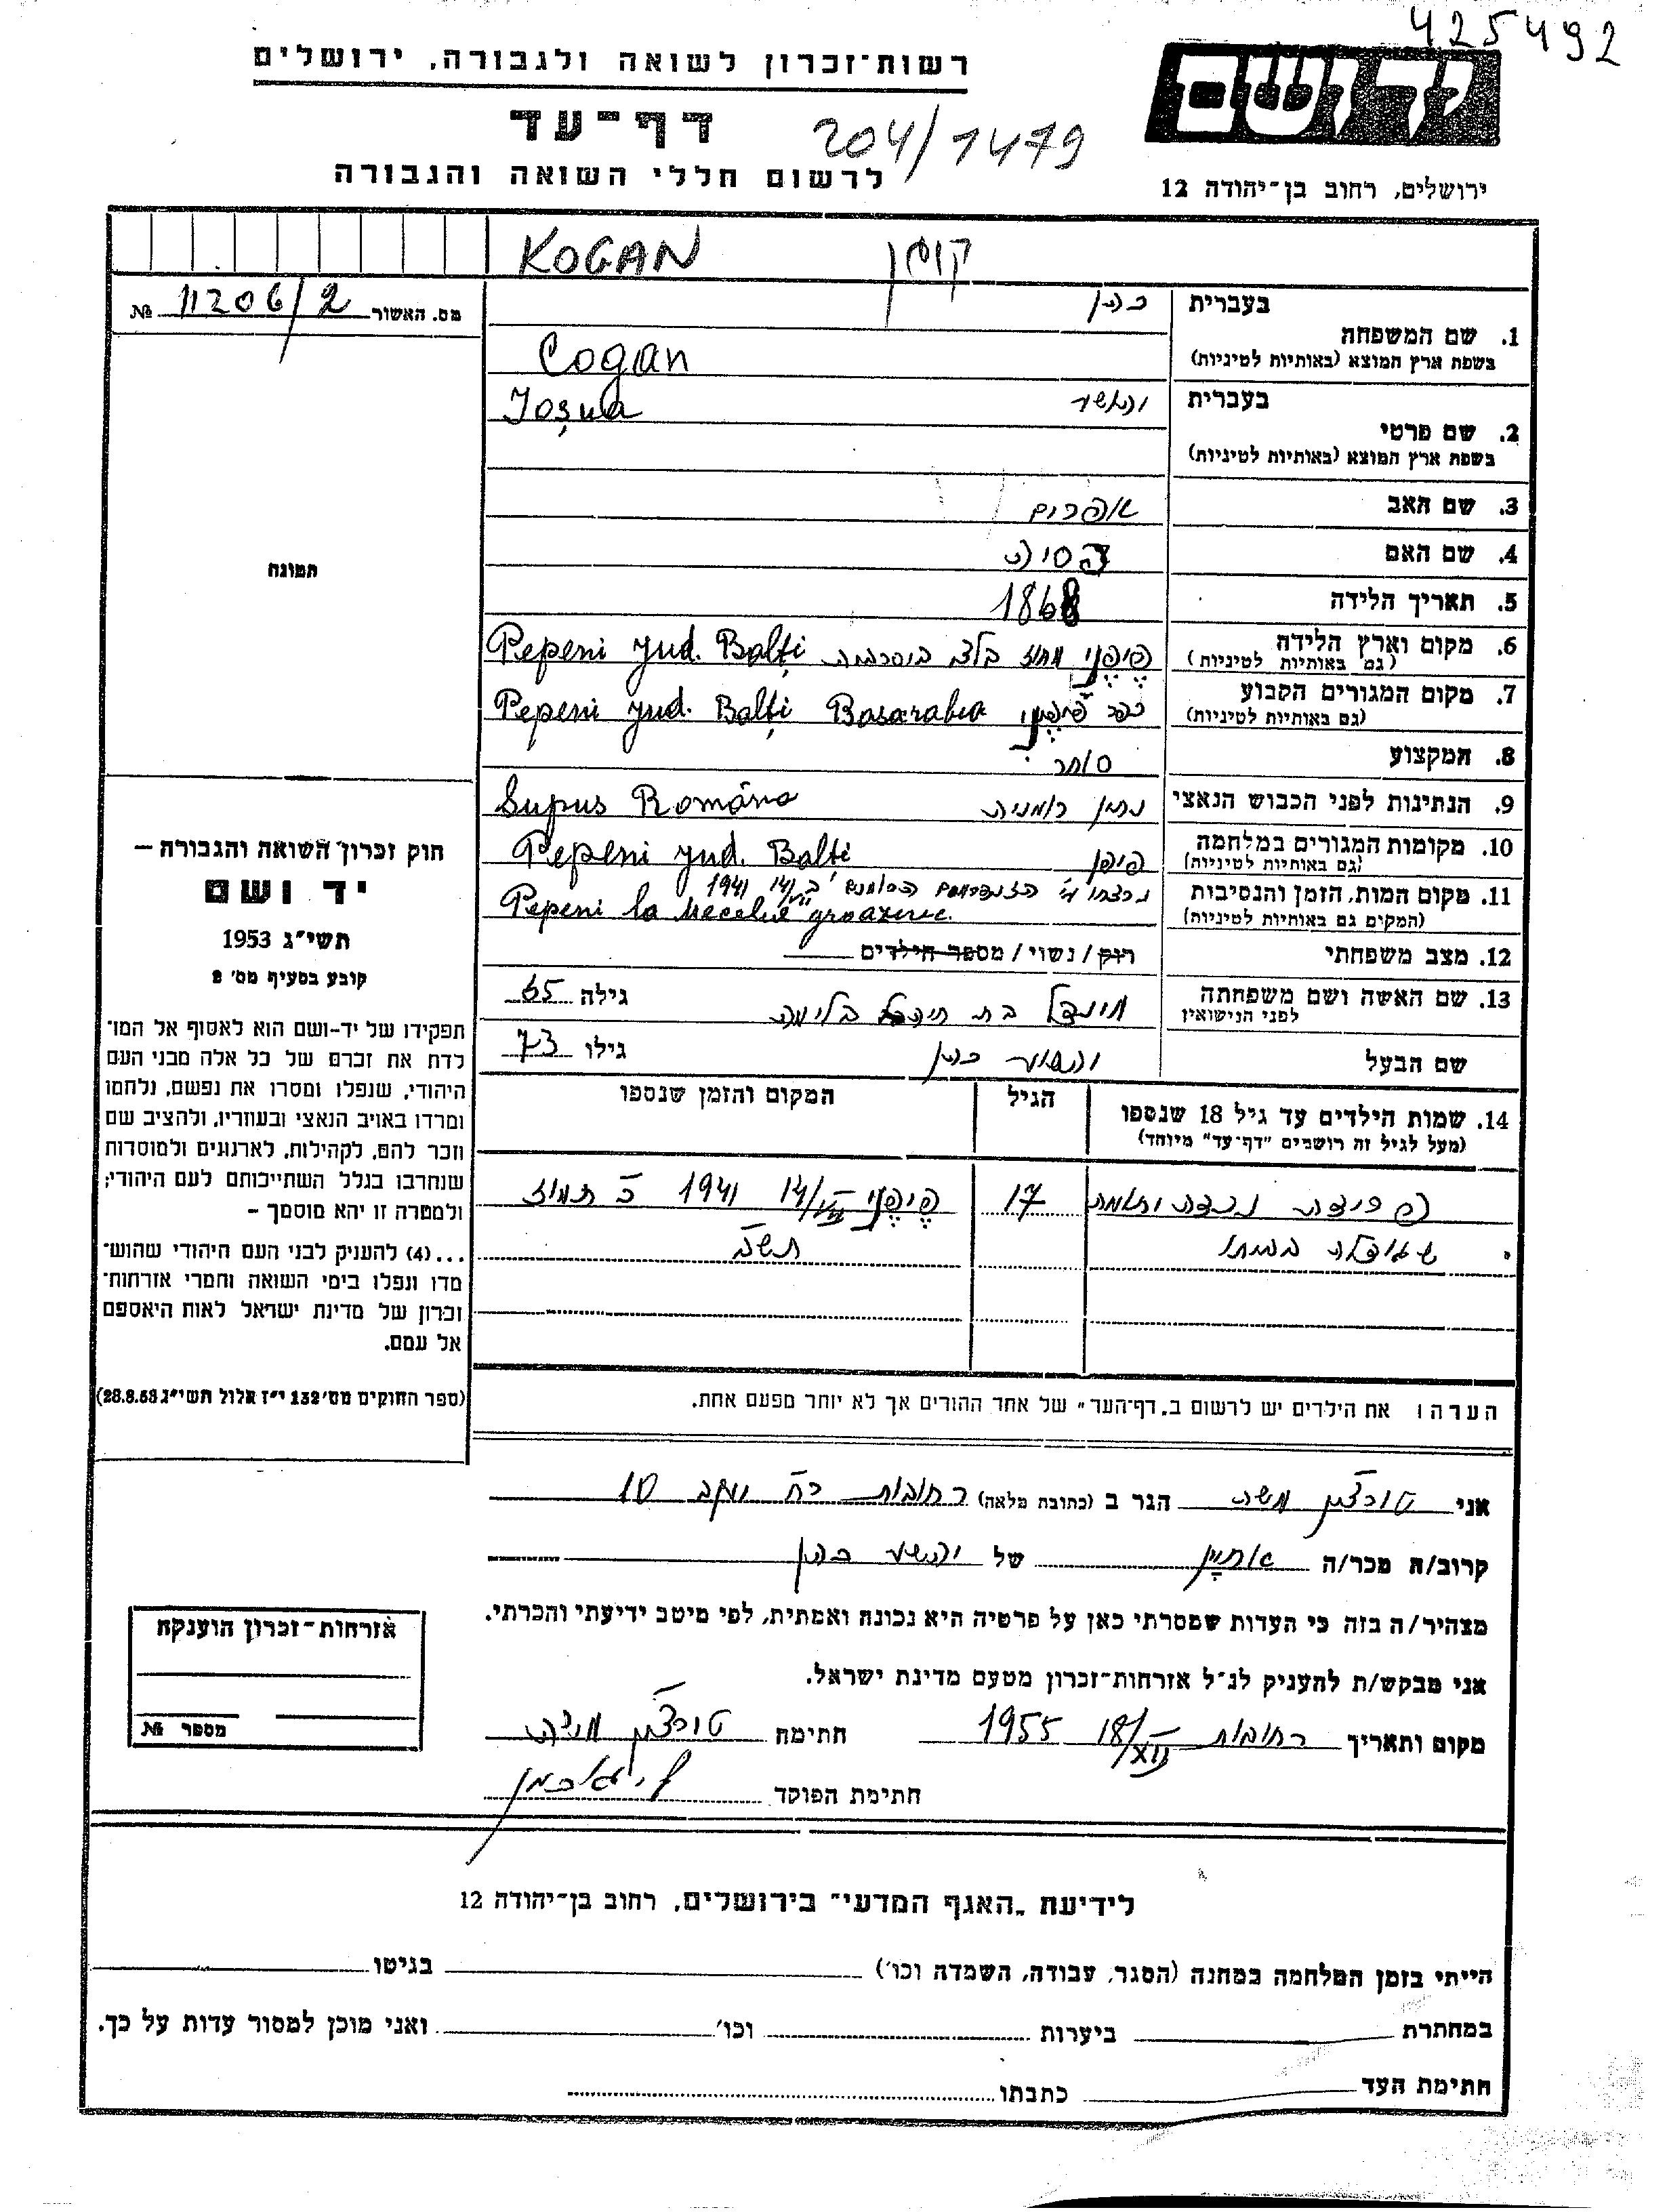 425492
רשות־זכרון לשואה ולגבורה, ירושלים
יד ושם
דף־עד
204/1479
לרשום חללי השואה והגבורה
ירושלים, רחוב בן־יהודה 12
KOGAN קוגן
מס. האשור 11206/2 №
בעברית כהן
1. שם המשפחה
בשפת ארץ המוצא (באותיות לטיניות) Cogan
בעברית יהושע
Ioșua
2. שם פרטי
בשפת ארץ המוצא (באותיות לטיניות)
3. שם האב אפרים
4. שם האם
תמונה
5. תאריך הלידה 1868
6. מקום וארץ הלידה פיפני מחוז בלצ בסרביה Pepeni jud. Balți
(גם באותיות לטיניות)
7. מקום המגורים הקבוע כפר פיפני Pepeni jud. Balți Basarabia
(גם באותיות לטיניות)
8. המקצוע סוחר
9. הנתינות לפני הכבוש הנאצי נתין רומניה Supus Româna
10. מקומות המגורים במלחמה פיפן Pepeni jud. Balti
(גם באותיות לטיניות)
11. מקום המות, הזמן והנסיבות נרצחו ע״י הז׳נדרמים הרומנים ב 14/VII 1941
(המקים גם באותיות לטיניות) Pepeni la
12. מצב משפחתי רווק/נשוי/מספר הילדים
13. שם האשה ושם משפחתה לפני הנישואין בת גילה 65
שם הבעל יהושע כהן גילו 73
14. שמות הילדים עד גיל 18 שנספו הגיל המקום והזמן שנספו
(מעל לגיל זה רושמים "דף־עד" מיוחד)
נכדה יתומה 17 פיפני 14/VII 1941 כ תמוז
שגודלה בביתו
חוק זכרון השואה והגבורה —
יד ושם
תשי״ג 1953
קובע בסעיף מס׳ 2
תפקידו של יד-ושם הוא לאסוף אל המו־
לדת את זכרם של כל אלה מבני העם
היהודי, שנפלו ומסרו את נפשם, נלחמו
ומרדו באויב הנאצי ובעוזריו, ולהציב שם
וזכר להם, לקהילות, לארגונים ולמוסדות
שנחרבו בגלל השתייכותם לעם היהודי;
ולמטרה זו יהא מוסמך —
...(4) להעניק לבני העם היהודי שהוש־
מדו ונפלו בימי השואה והמרי אזרחות־
זכרון של מדינת ישראל לאות היאספם
אל עמם.
(ספר החוקים מס׳ 132 י״ז אלול תשי״ג 28.8.53)
הערה: את הילדים יש לרשום ב„דף־העד" של אחד ההורים אך לא יותר מפעם אחת.
אני משה הגר ב (כתובת מלאה) רחובות רח יעקב 10
קרוב/ה מכר/ה אחיין של יהושע כהן
מצהיר/ה בזה כי העדות שמסרתי כאן על פרטיה היא נכונה ואמתית, לפי מיטב ידיעתי והכרתי.
אני מבקש/ת להעניק לנ״ל אזרחות־זכרון מטעם מדינת ישראל.
מקום ותאריך רחובות 18/XII 1955 חתימה
חתימת הפוקד
אזרחות־זכרון הוענקה
מספר №
לידיעת „האגף המדעי" בירושלים, רחוב בן־יהודה 12
הייתי בזמן המלחמה במחנה (הסגר, עבודה, השמדה וכו׳) בגיטו
במחתרת ביערות וכו׳ ואני מוכן למסור עדות על כך.
חתימת העד כתבתו